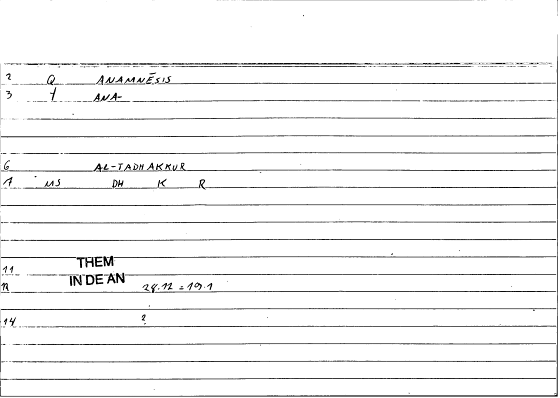 2 Q ANAMNĒSIS
3 Y ANA-
6 AL-TADHAKKUR
7 MS DH K R
11 THEM
12 IN DE AN 28.12 = 19.1
14 2